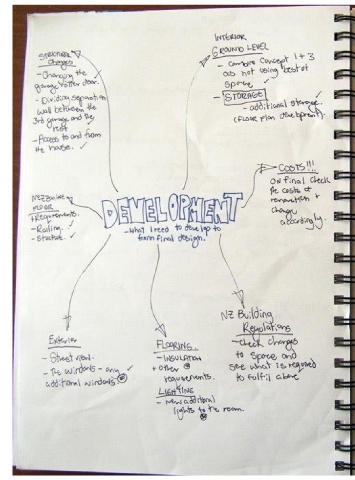 STRUCTURAL
Changes
- Changing the
garage roller door.
- Dividing separation
wall between the
3rd garage and the
rest
- Access to and from
the house.
INTERIOR
GROUND LEVEL
- combine concept 1 + 3
as not using best of
space
- STORAGE
- additional storage.
(Floor plan development).
COSTS!!!
On final check
the costs of
renovation +
change
accordingly.
MEZZANINE
FLOOR
+ Requirements.
- Railing.
- Structure.
DEVELOPMENT
- What I need to develop to
form final design.
Exterior
- Street view.
- The windows - any
additional windows
FLOORING.
- INSULATION
+ other
requirements.
LIGHTING
- New additional
lights to the room.
NZ Building
Regulations
- check changes
to space and
see what is required
to fulfil above